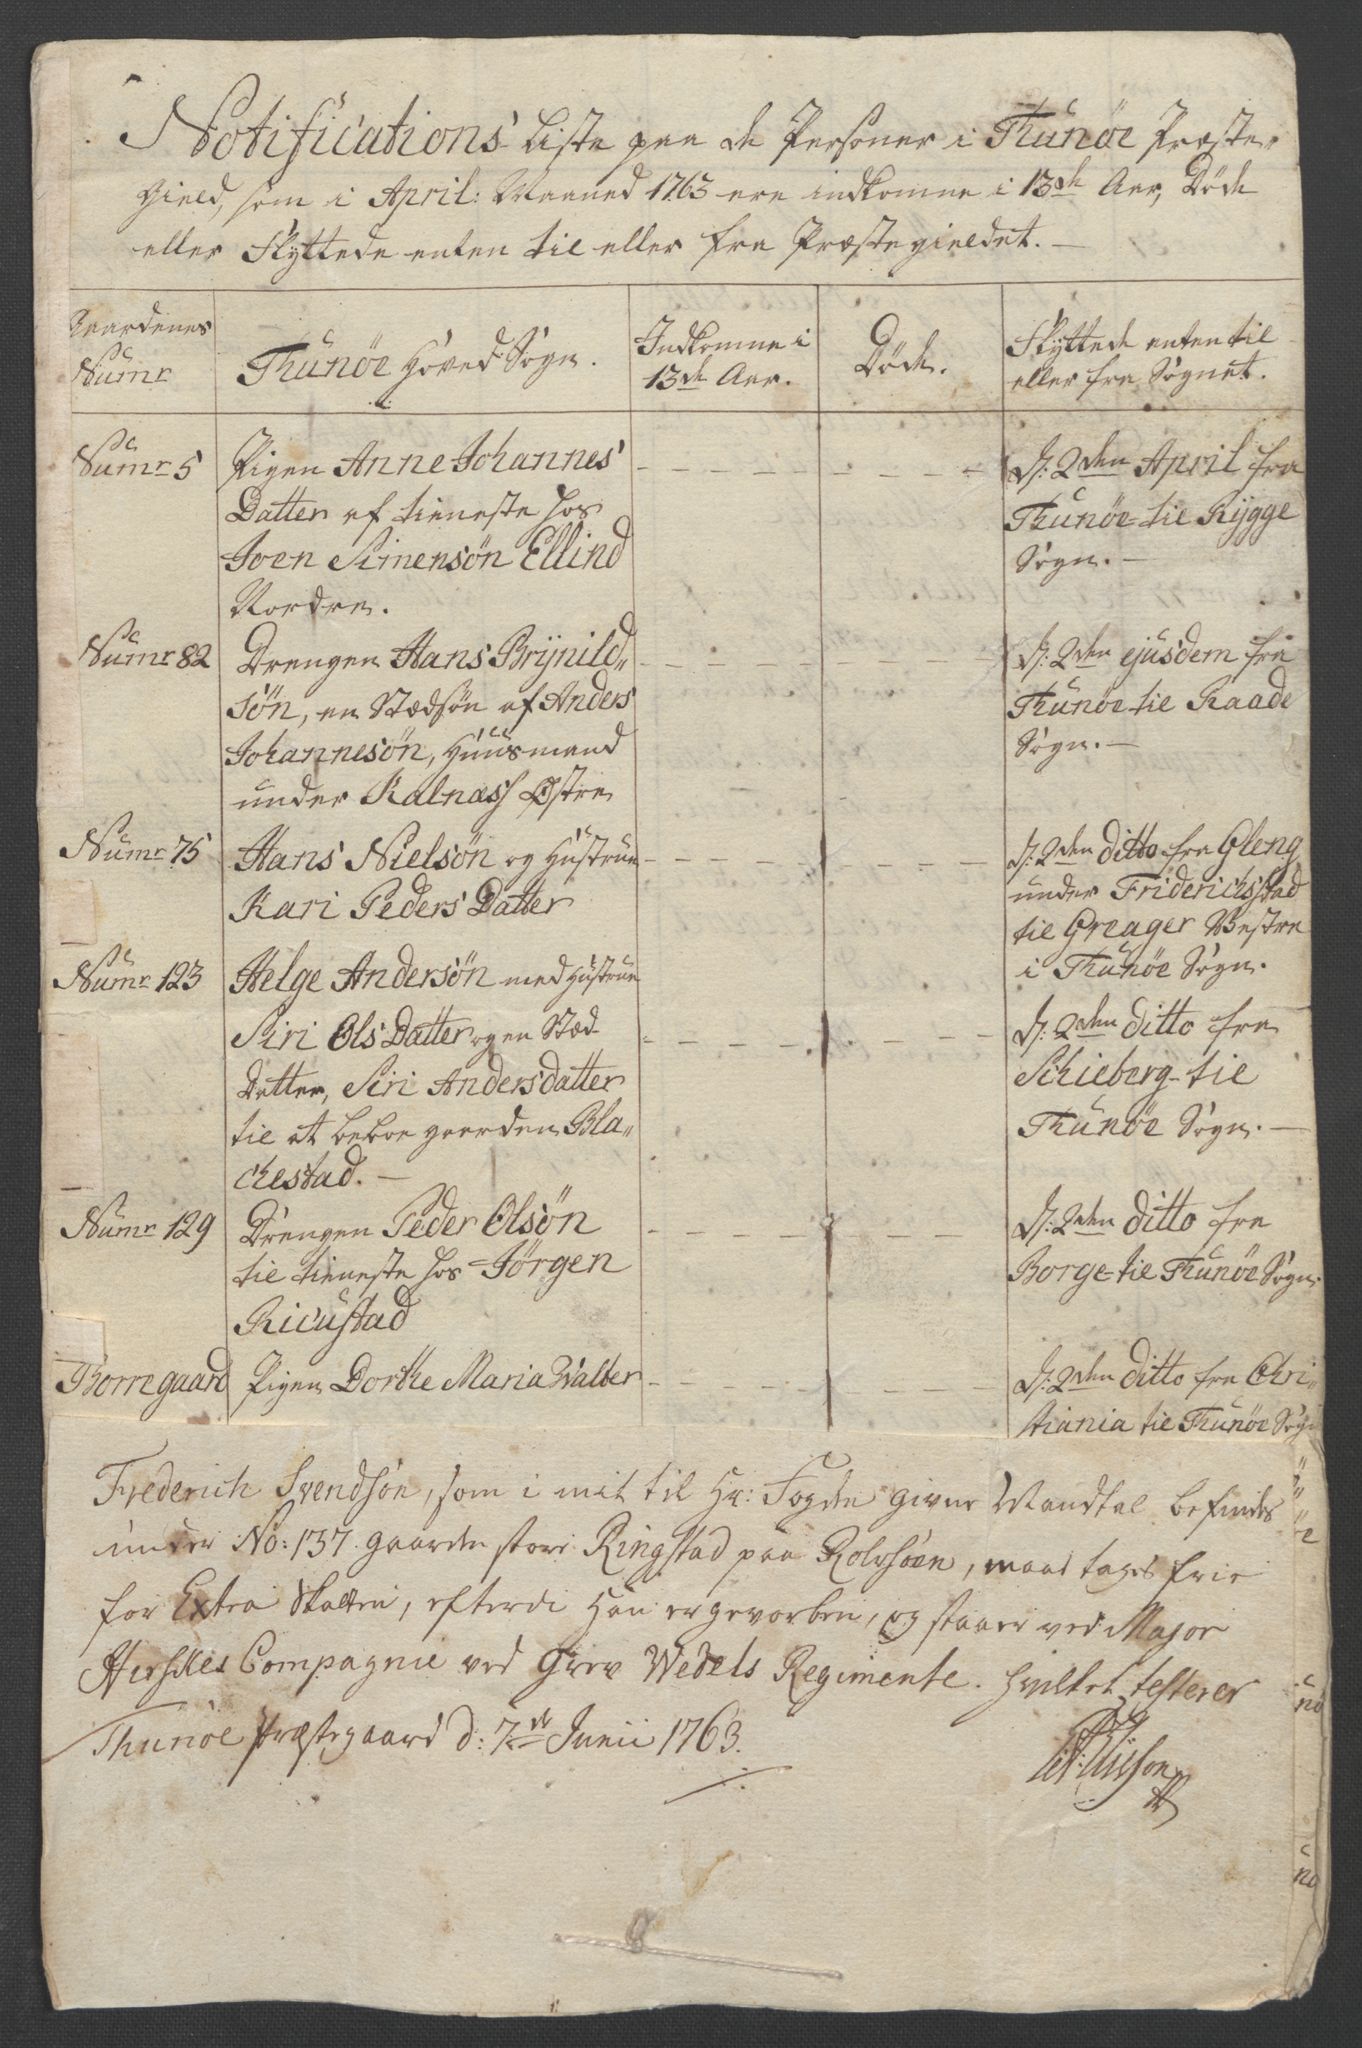 Notifications Liste paa de Personer i Thunöe Præste-
Gield, som i April: Maaned 1763 ere indkomne i 13de Aar, Döde
eller Flÿttede enten til eller fra Præstegieldet.
Gaardenes
Numr
Thunöe Hoved-Sogn.
Indkomne i
13de Aar.
Döde.
Flÿttede enten til
eller fra Sognet.
Numr 5
Pigen Anne Johannes
Datter af tieneste hos
Joen Simensön Ellind
Nordre.
D: 2den April fra
Thunöe til Rÿgge
Sogn.
Numr 82
Drengen Hans Brÿnild-
sön, en Stædsön af Anders
Johannesön, Huusmand
under Kalnæss Østre
D: 2den ejusdem fra
Thunöe til Raade
Sogn.
Numr 75
Hans Nielsön og Hustrue
Kari Peders Datter
D: 2den ditto fra Gleng
under Friderichsstad
til Greager Vestre
i Thunöe Sogn.
Numr 123
Helge Andersön med Hustrue
Siri Ols Datter og en Stæd-
Datter, Siri Andersdatter
til at beboe gaarden Bla-
chestad.
D: 2den ditto fra
Schieberg til
Thunöe Sogn.
Numr 129
Drengen Peder Olsön
til tieneste hos Jörgen
Ricustad
D: 2den ditto fra
Borge til Thunöe Sogn.
Borregaard
Pigen Dorthe Maria Walter
D: 2den ditto fra Chri-
stiania til Thunöe Sogn
Frederich Svendsön, som i mit til Hr: Fogden givne Mandtal befindes
under No: 137 gaarden store Ringstad paa Rolvsöen, maae tages frie
for Extra Skatten, efterdi Han er gevorben, og staaer ved Major
Hersches Compagnie ved Grev Wedels Regimente. Hvilket testerer
Thunöe Præstegaard d: 7de Junii 1763.